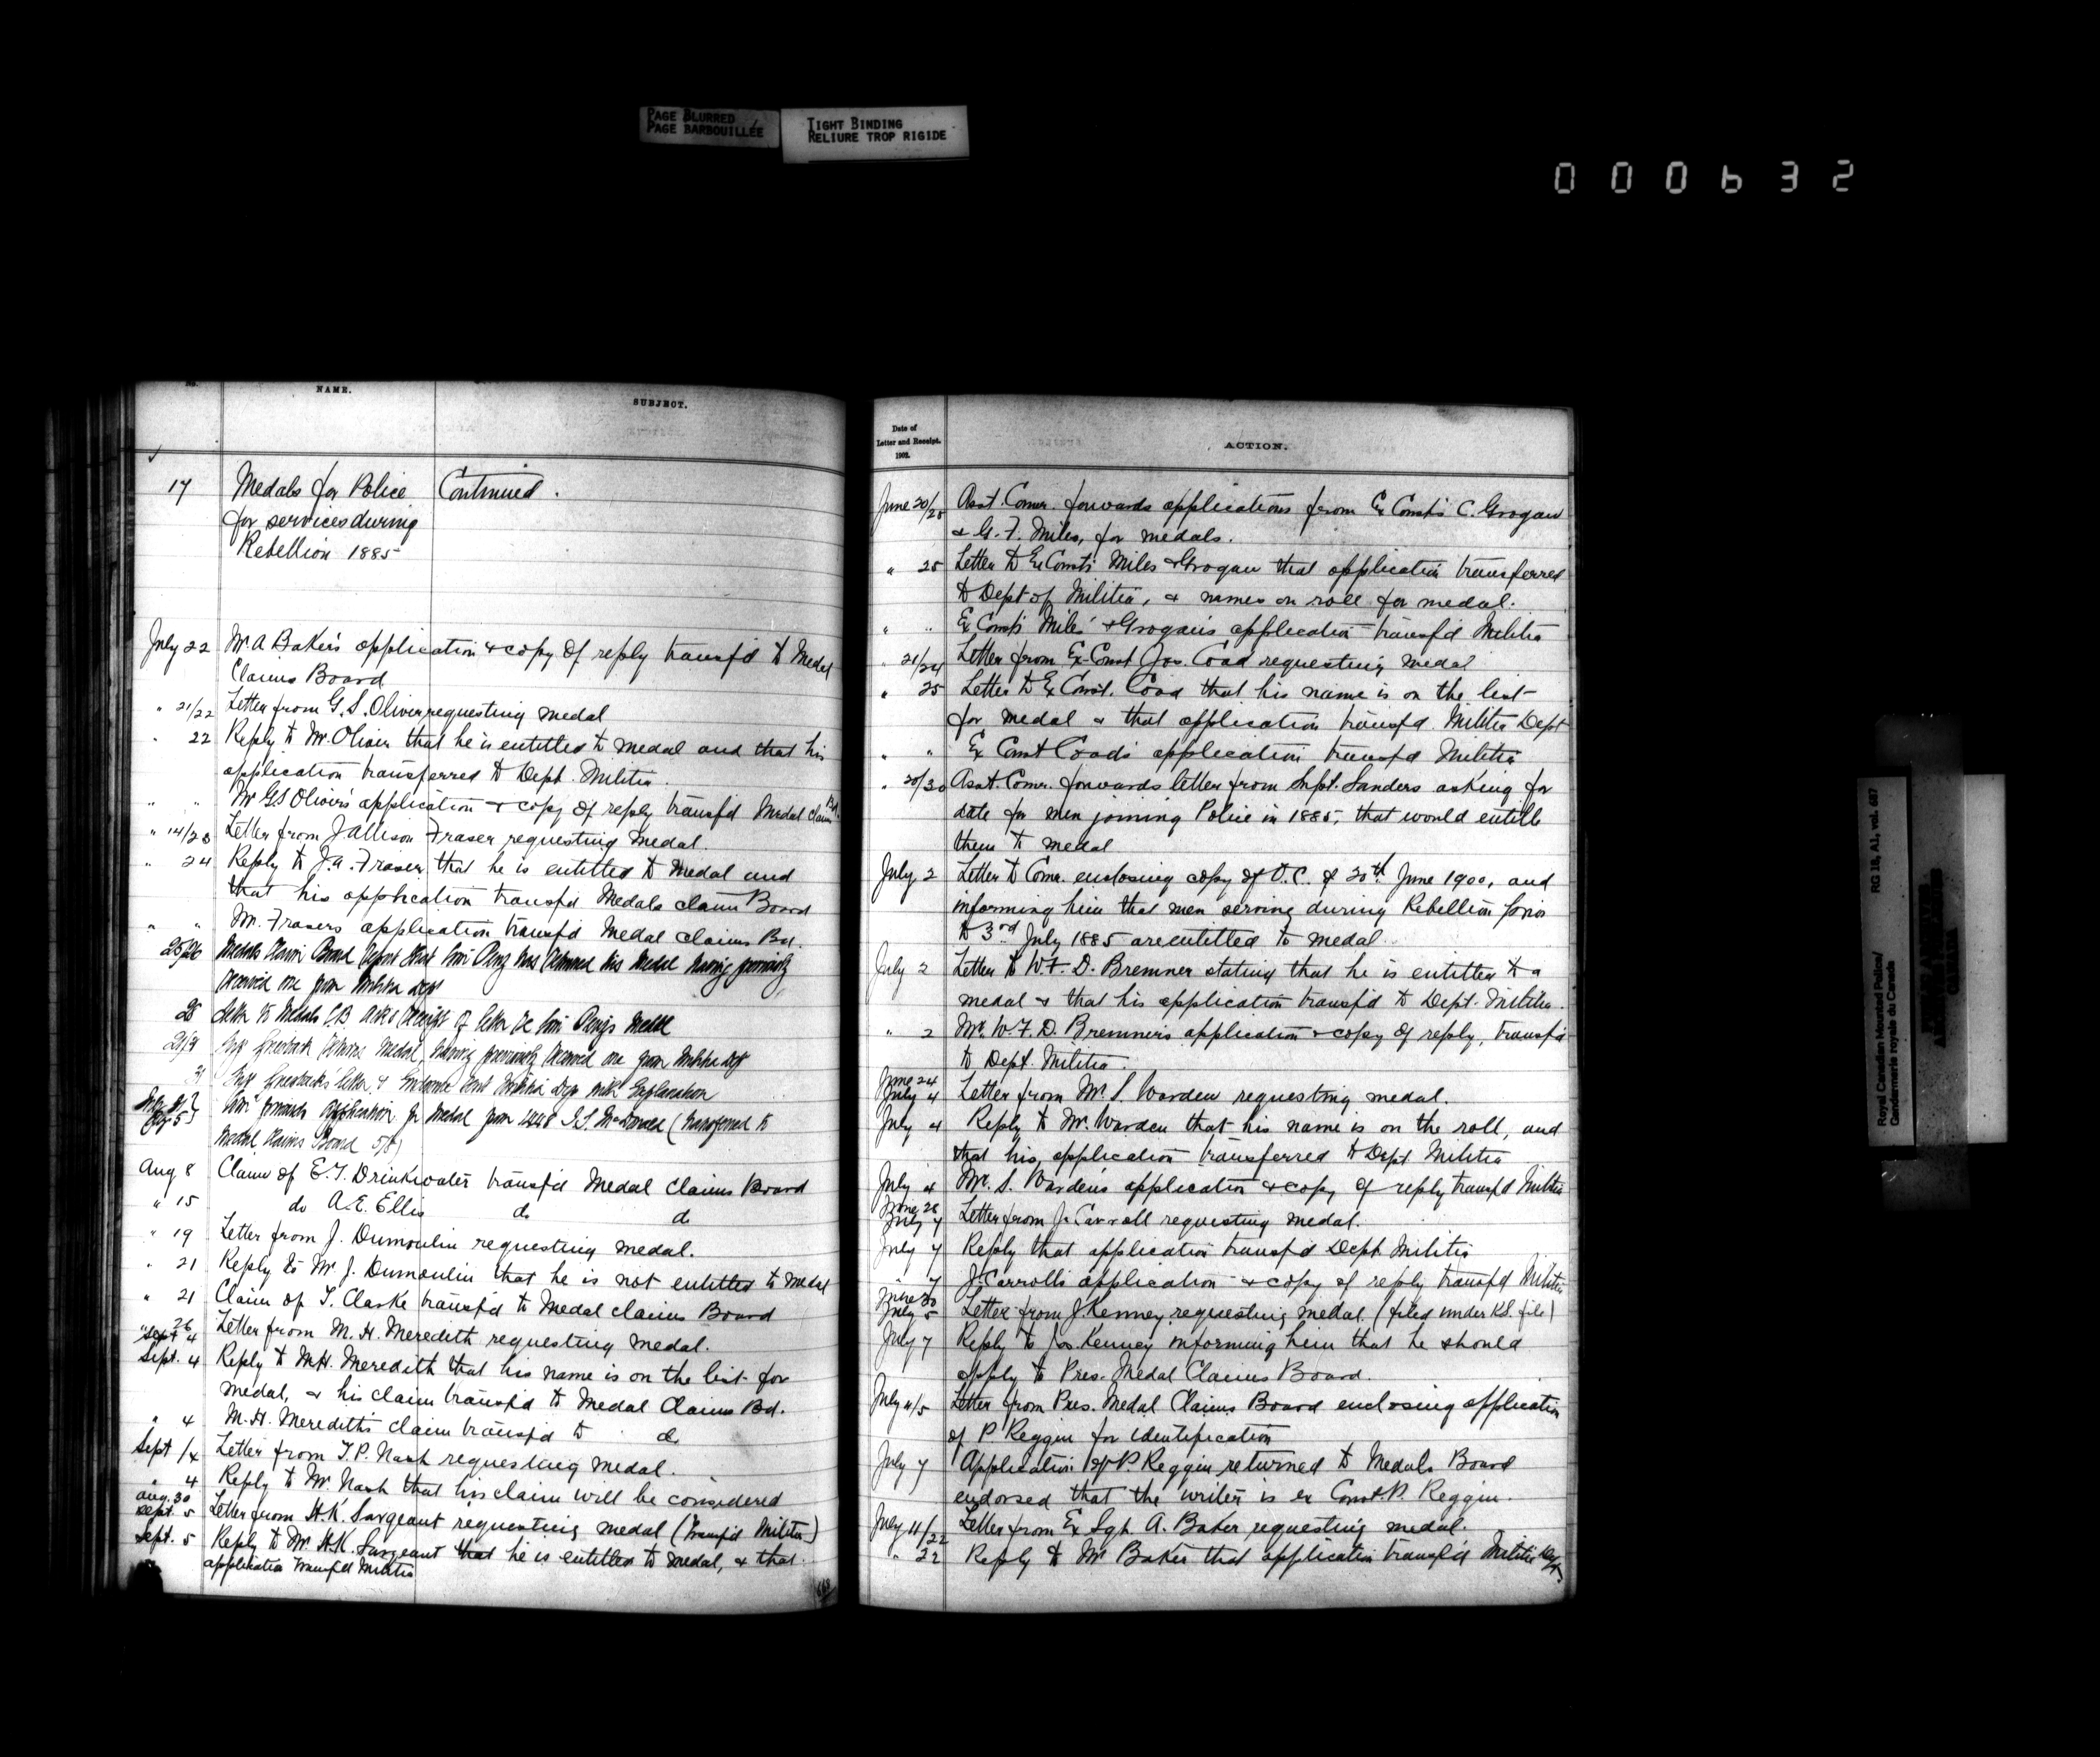 PAGE BLURRED
PAGE BARBOUILLÉE
TIGHT BINDING
RELIURE TROP RIGIDE
000632
No.
NAME.
SUBJECT.
17 Medals for Police Continued.
for services during
Rebellion 1885
July 22 Mr A Baker's application & copy of reply transf'd to Medal
Claims Board
" 21/22 Letter from G. S. Olivier requesting medal
" 22 Reply to Mr. Olivier that he is entitled to medal and that his
application transferred to Dept. Militia.
" " Mr GS Olivier's application & copy of reply transf'd Medal Claim Bd.
" 14/23 Letter from J Allison Fraser requesting medal.
" 24 Reply to J.A. Fraser that he is entitled to medal and
that his application transf'd Medals claim Board
" " Mr. Frasers application transf'd Medal claims Bd.
25/26 Medals Claim Board report that has returned his Medal having previously
received one from Militia Dept
28 Letter to Medals C.B. asks receipt of letter re Medal
returns Medal, having previously received one from Militia Dept
31 letter & sent Militia Dept with Explanation
forwards application for Medal from McDonald (transferred to
Medal Claims Board 5/8)
Aug 8 Claim of E.T. Drinkwater transf'd Medal Claims Board
" 15 do A.E. Ellis do do
" 19 Letter from J. Dumoulin requesting medal.
" 21 Reply to Mr J. Dumoulin that he is not entitled to medal
" 21 Claim of T. Clarke transf'd to Medal claims Board
" 26 Sept 4 Letter from M. H. Meredith requesting medal.
Sept. 4 Reply to M.H. Meredith that his name is on the list for
medal, & his claim transf'd to Medal Claims Bd.
" 4 M.H. Meredith's claim transf'd to do
Sept 1/4 Letter from T.P. Nash requesting medal.
" 4 Reply to Mr Nash that his claim will be considered
Aug. 30 Sept. 5 Letter from H.K. Sargeant requesting medal (Transf'd Militia)
Sept. 5 Reply to Mr H.K. Sargeant that he is entitled to medal, & that
application transf'd Militia
Date of
Letter and Receipt.
1902.
ACTION.
June 20/25 Asst. Comr. forwards applications from Ex Const's C. Grogan
& G. F. Miles, for medals.
" 25 Letter to Ex Const's Miles & Grogan that application transferred
to Dept of Militia, & names on roll for medal.
" " Ex Const's Miles' & Grogan's application transf'd Militia
" 21/24 Letter from Ex-Const Jas. Coad requesting medal
" 25 Letter to Ex Const. Coad that his name is on the list
for medal & that application transf'd. Militia Dept
" " Ex Const Coad's application transf'd Militia
" 20/30 Asst. Comr. forwards letter from Supt. Sanders asking for
date for men joining Police in 1885, that would entitle
them to medal
July 2 Letter to Comr. enclosing copy of O.C. of 30th June 1900, and
informing him that men serving during Rebellion prior
to 3rd July 1885 are entitled to medal.
July 2 Letter to W.F. D. Bremner stating that he is entitled to a
medal & that his application transf'd to Dept. Militia.
" 2 Mr. W. F. D. Bremner's application & copy of reply, transf'd
to Dept. Militia.
June 24 July 4 Letter from Mr. S. Warden requesting medal.
July 4 Reply to Mr. Warden that his name is on the roll, and
that his application transferred to Dept Militia
July 4 Mr. S. Warden's application & copy of reply transf'd Militia
June 28 July 7 Letter from J. Carroll requesting medal.
July 7 Reply that application transf'd Dept Militia
" 7 J. Carroll's application & copy of reply transf'd Militia
June 30 July 5 Letter from J. Kenney requesting medal. (filed under K.S. file)
July 7 Reply to Jos. Kenney informing him that he should
apply to Pres. Medal Claims Board.
July 4/5 Letter from Pres. Medal Claims Board enclosing application
of P Reggin for identification
July 7 Application of P. Reggin returned to Medals Board
endorsed that the writer is ex Const. P. Reggin.
July 11/22 Letter from Ex Sgt. A. Baker requesting medal.
" 22 Reply to Mr Baker that application transf'd Militia Dept.
Royal Canadian Mounted Police/ RG 18, A1, vol. 687
Gendarmerie royale du Canada